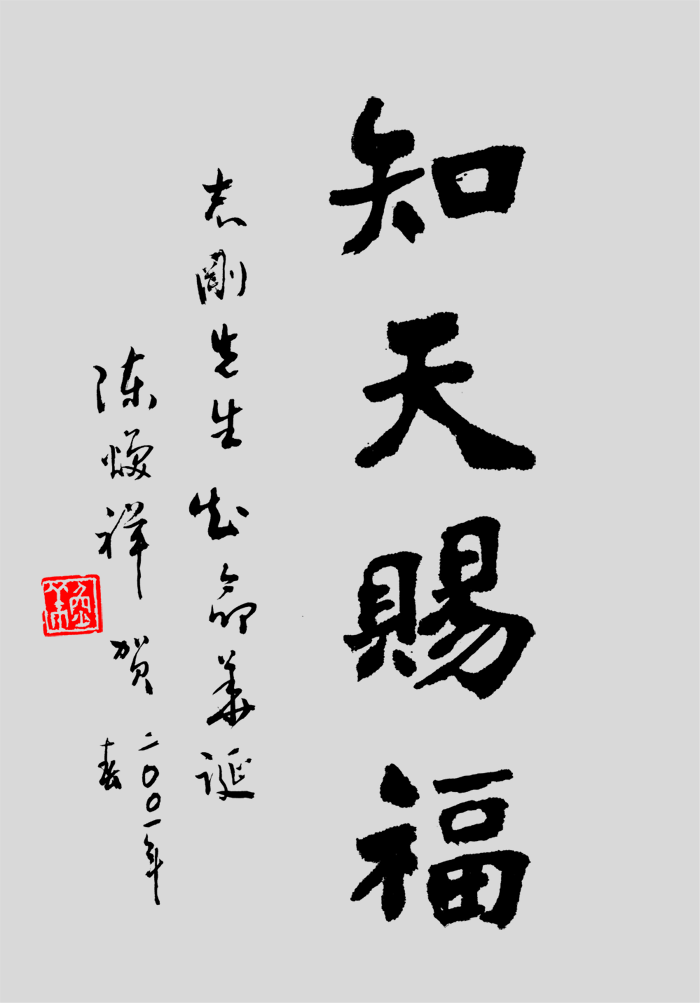 知天賜福
志剛先生知命華诞
陈焕祥贺
二〇〇一年
春